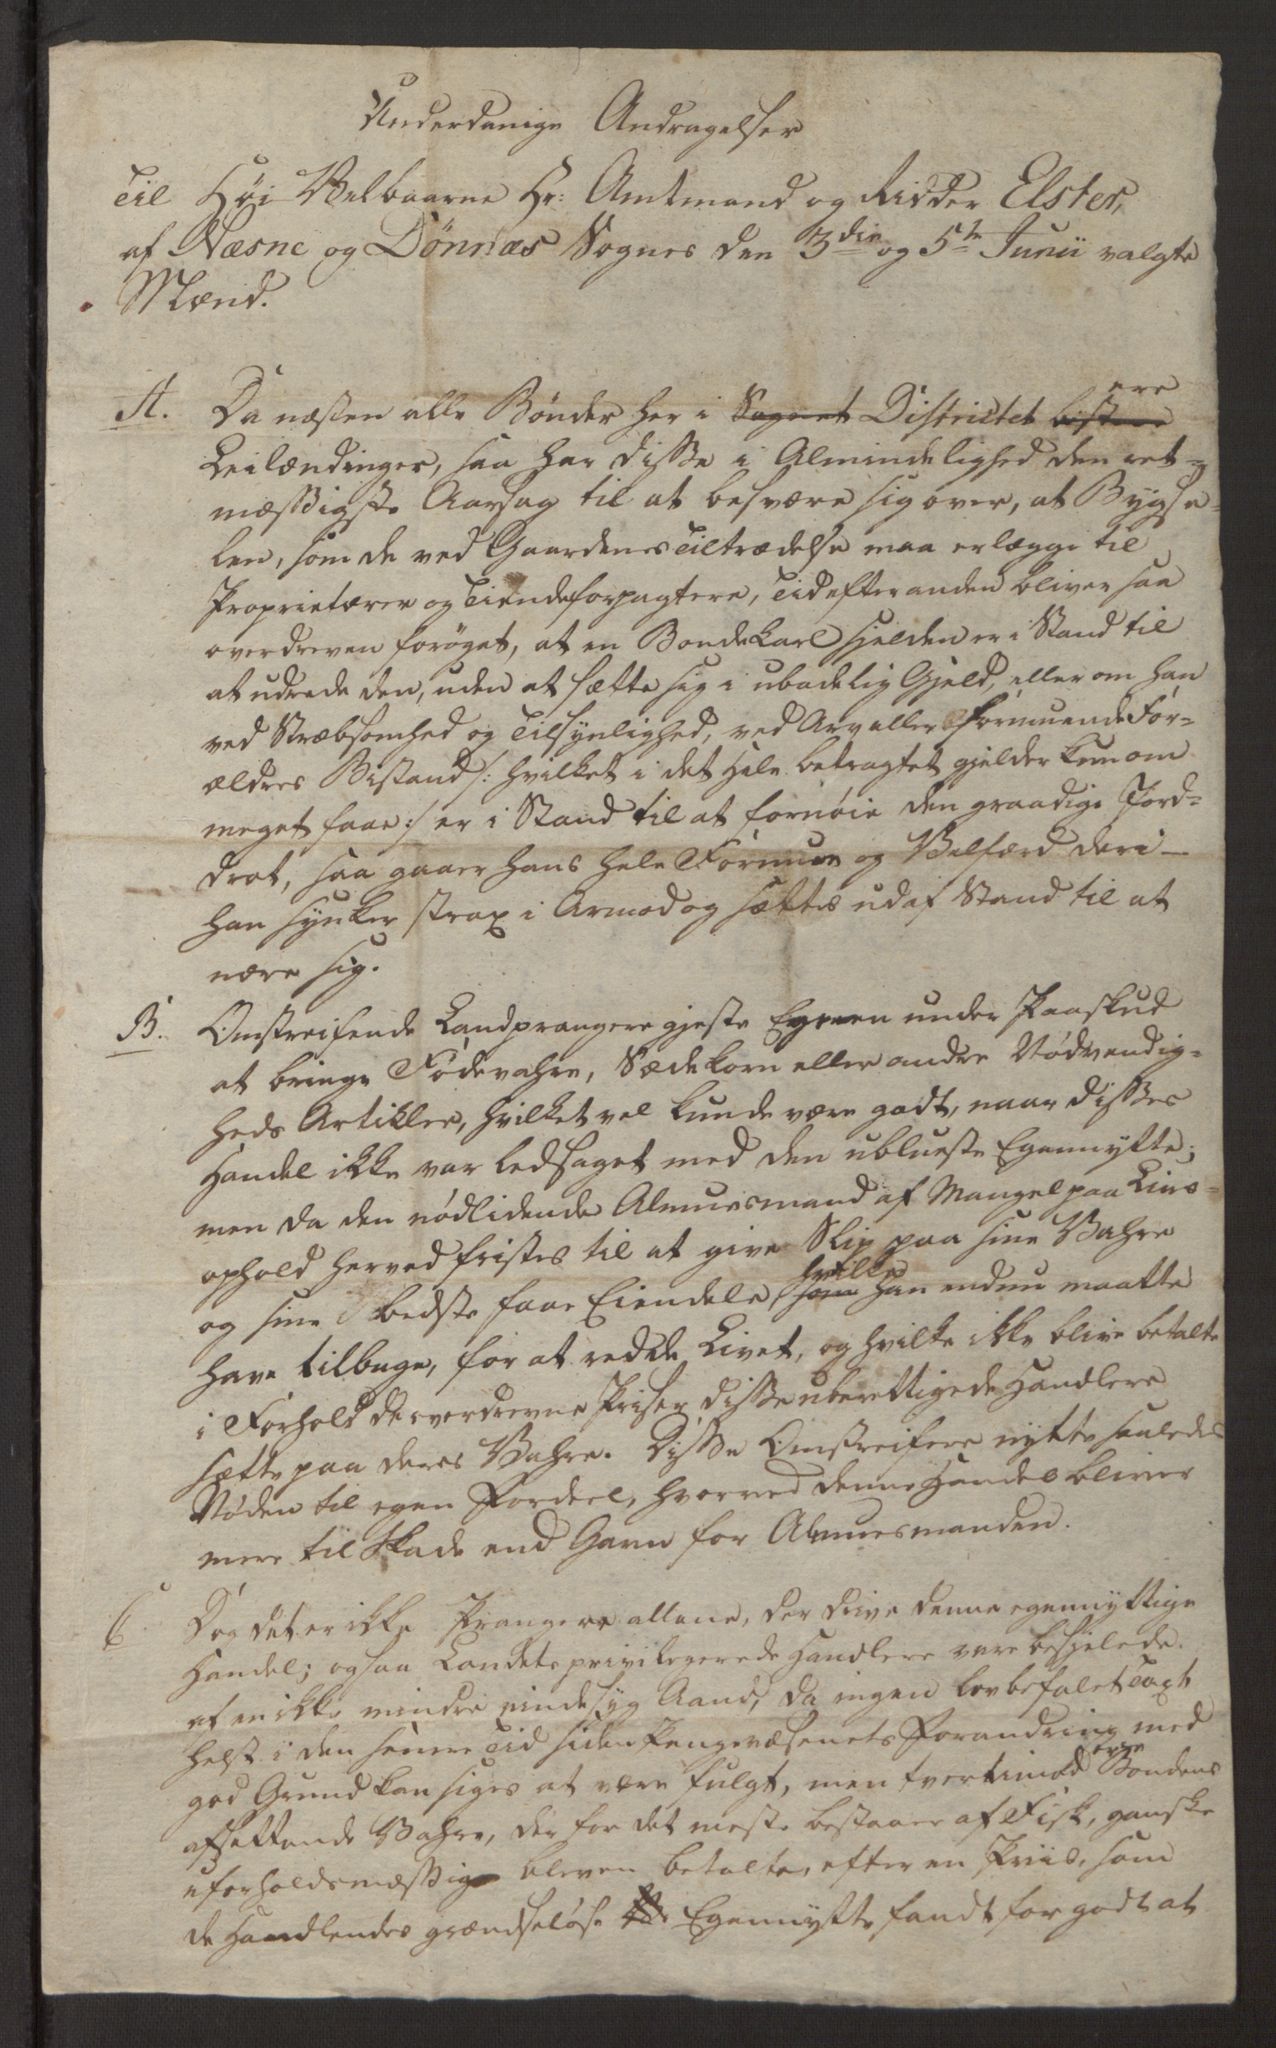 Underdanige Andragelser
Til Høi Velbaarne Hr: Amtmand og Ridder Elster,
af Næsne og Dønnæs Sognes den 3die og 5te Junii valgte
Mænd.
A. Da næsten alle Bønder her i Sognet Districtet ere
Leilændinger, saa har disse i Almindelighed den ret-
mæssigste Aarsag til at besvære sig over, at Bygse-
len, som de ved Gaardenes Tiltrædelse maa erlægge til
Proprietærer og Tiendeforpagtere, Tid efter anden bliver saa
overdreven forøget, at en Bondekarl sjelden er i Stand til
at udrede den, uden at sætte sig i ubodelig Gjeld, eller om han
ved Stræbsomhed og Tilsynlighed, ved Arv eller formuende For-
ældres Bistand /: hvilket i det Hele betragtet gjelder kun om
meget faae :/ er i Stand til at fornøie den graadige Jord-
drot, saa gaaer hans hele Formue og Velfærd deri —
han synker strax i Armod og sættes ud af Stand til at
nære sig.
B. Omstreifende Landprangere gjeste Egnen under Paaskud
at bringe Fødevahre, Sædekorn eller andre Nødvendig-
heds Artikler, hvilket vel kunde være godt, naar disses
Handel ikke var ledsaget med den ublueste Egennytte;
men da den nødlidende Almuesmand af Mangel paa Livs-
ophold herved fristes til at give Slip paa sine Vahre
og sine bedste faae Eiendele, som hvilke han endnu maatte
have tilbage, for at redde Livet, og hvilke ikke blive betalte
i Forhold de overdrevne Priser disse uberettigede Handlere
sætte paa deres Vahre. Disse Omstreifere nytte saaledes
Nøden til egen Fordeel, hvorved denne Handel bliver
mere til Skade end Gavn for Almuesmanden.
C Dog det er ikke Prangere allene, der drive denne egennyttige
Handel; ogsaa Landets privilegerede Handlere være besjelede
af en ikke mindre vindesyg Aand, da ingen lovbefalet Taxt
helst i den senere Tid siden Pengevæsenets Forandring med
god Grund kan siges at være fulgt, men tvertimod ere Bondens
afsættende Vahre, der for det meste bestaaer af Fisk, ganske
uforholdsmæssig bleven betalte, efter en Priis, som
de Handlendes grændseløse Egennytte fandt for godt at